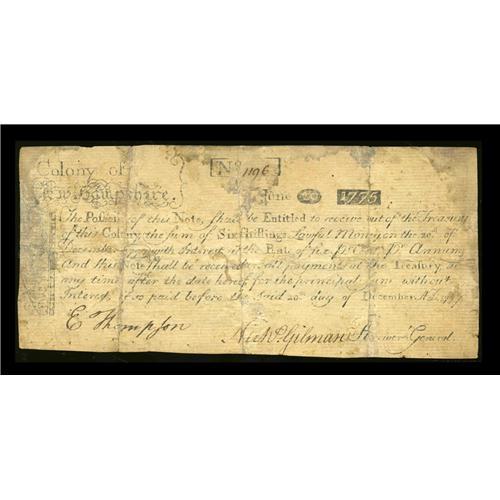 Colony of
New Hampshire.
No 1196
June 20 1775
The Possessor of this Note, shall be Entitled to receive out of the Treasury
of this Colony the sum of Six Shillings Lawful Money on the 20th of
December with Interest at the Rate of six Pr Ct Pr Annum
And this Note shall be received in all payments at the Treasury at
any time after the date hereof for the principal sum without
Interest, if so paid before the said 20th day of December
E Thompson
Nichs. Gilman Receiver General.